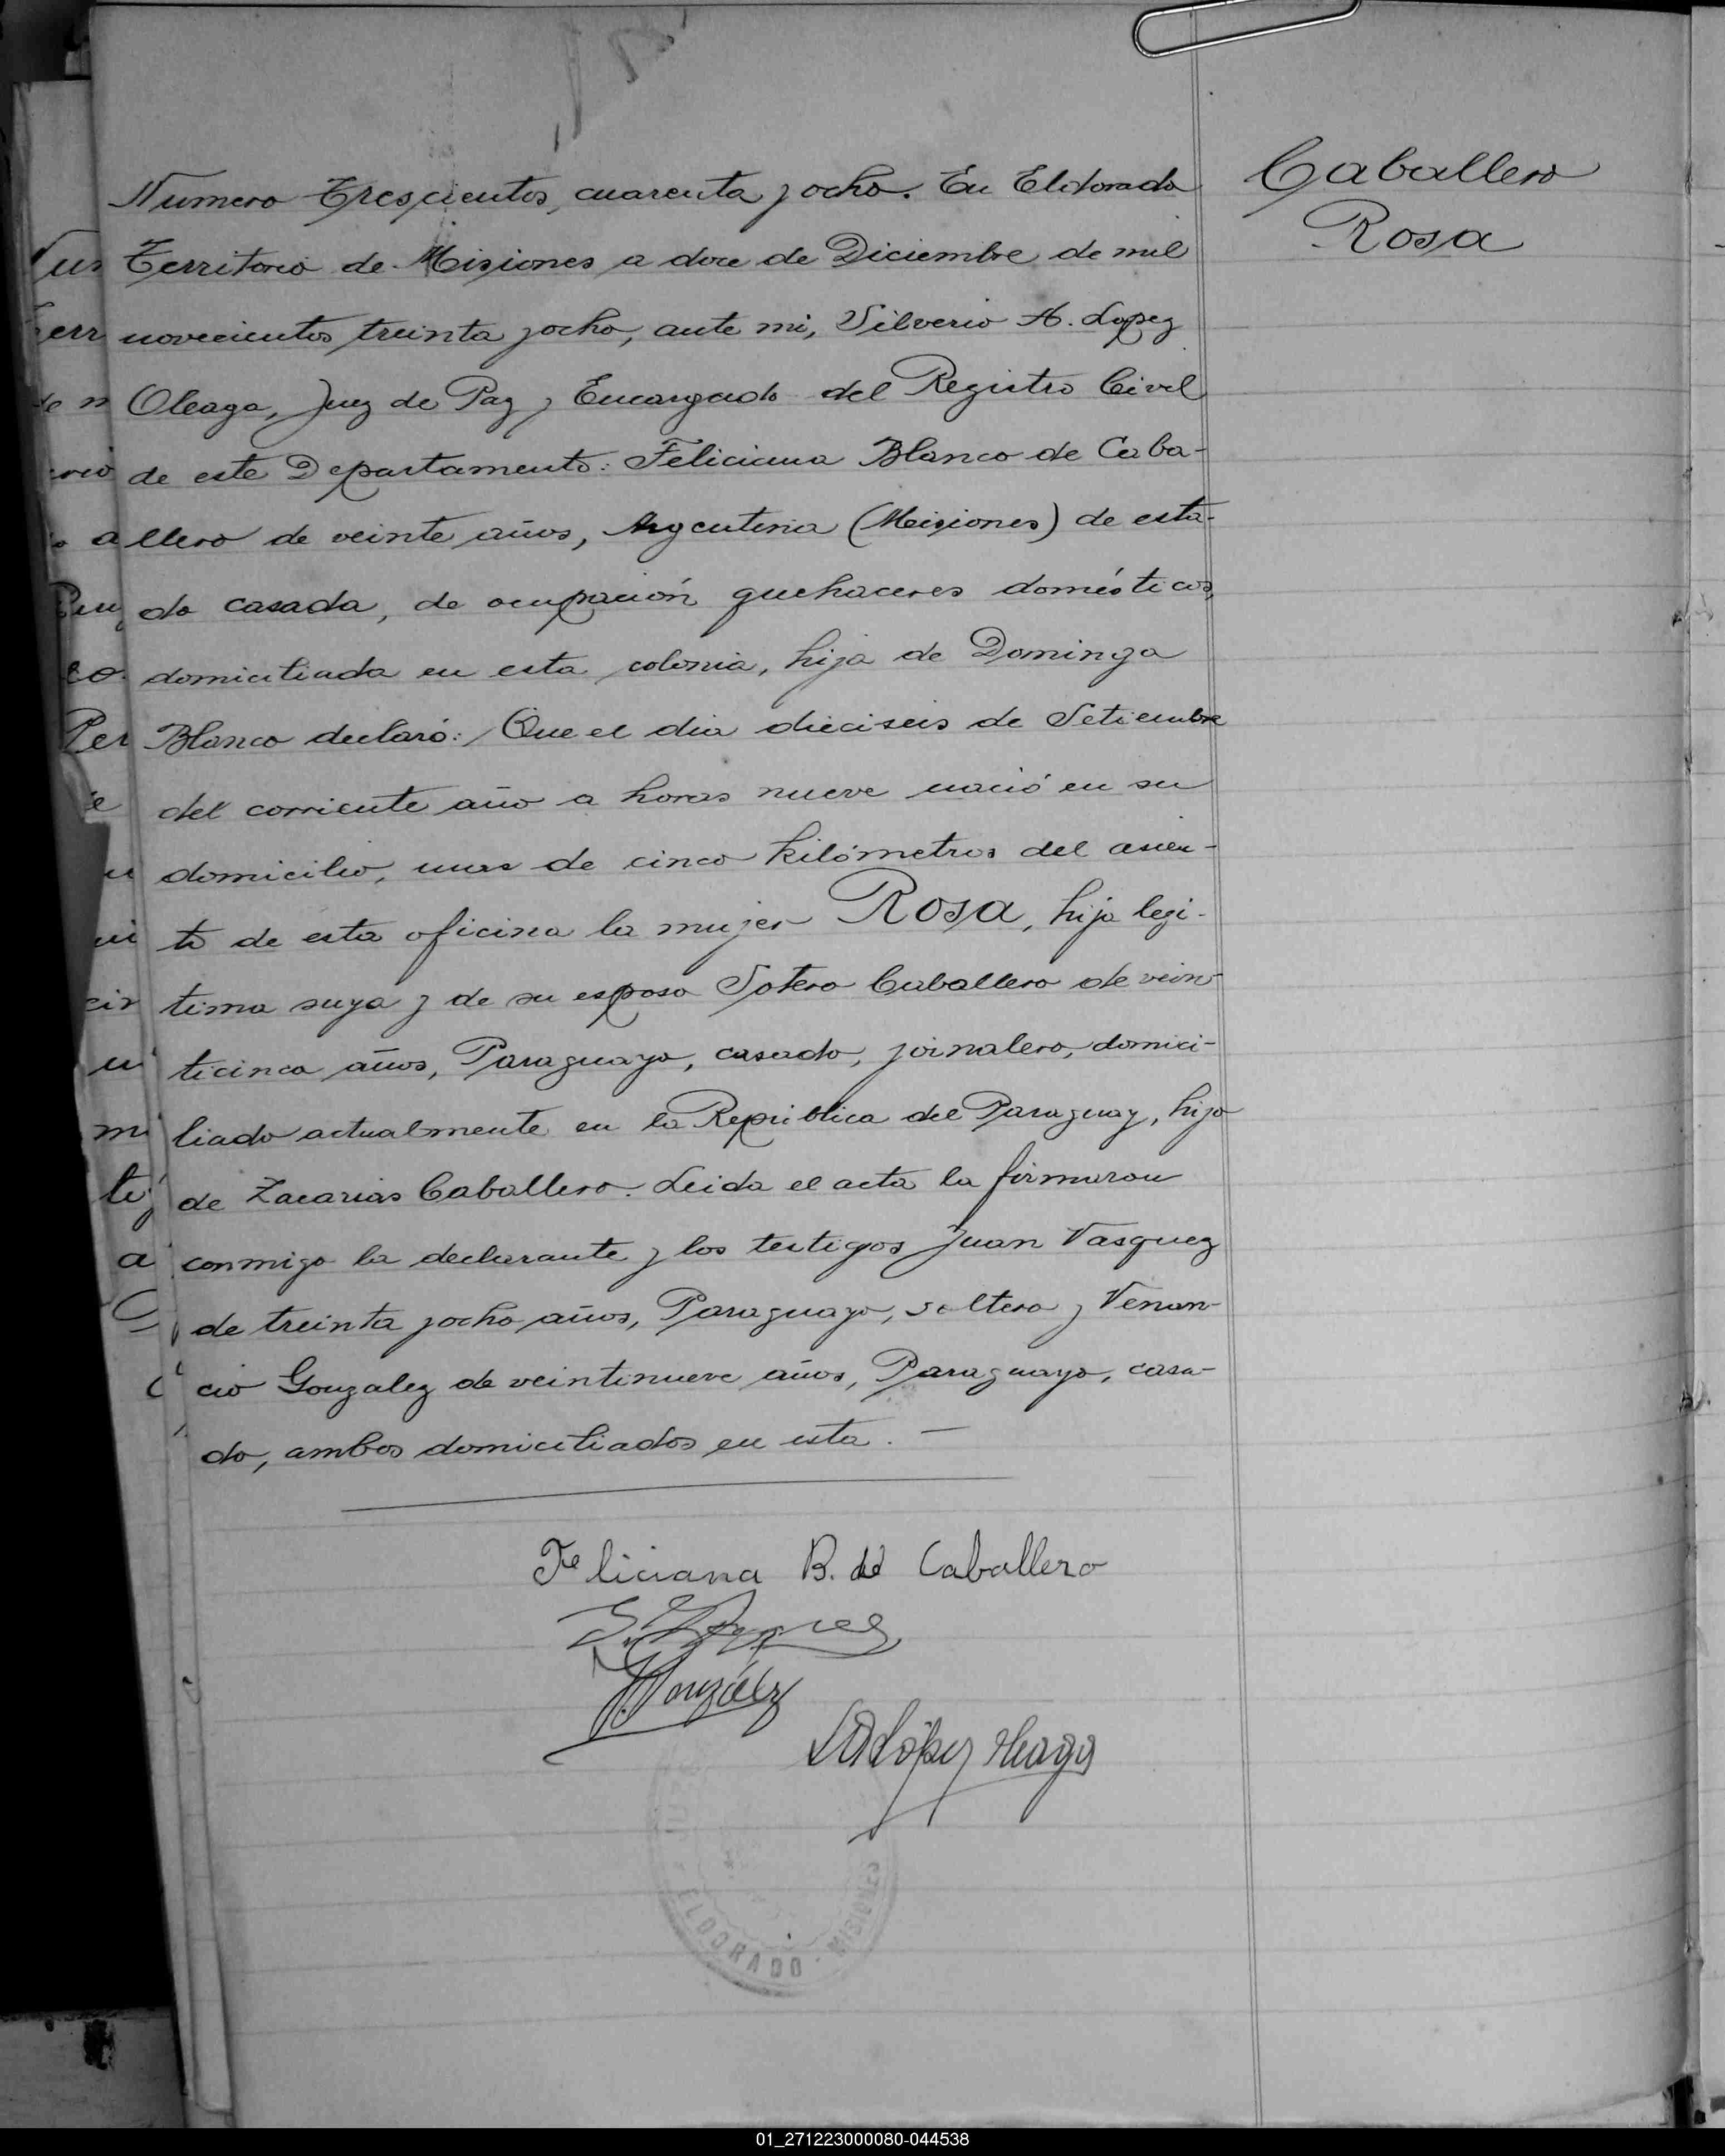 Caballero
Rosa
Numero Trescientos, cuarenta y ocho. En Eldorado
Territorio de Misiones a doce de Diciembre de mil
novecientos treinta y ocho, ante mi, Silverio A. Lopez
Oleaga, Juez de Paz y Encargado del Registro Civil
de este Departamento: Feliciana Blanco de Caba-
llero de veinte años, Argentina (Misiones) de esta-
do casada, de ocupación quehaceres domésticos,
domiciliada en esta colonia, hija de Dominga
Blanco declaró: Que el dia dieciseis de Setiembre
del corriente año a horas nueve nació en su
domicilio, mas de cinco kilómetros del asien-
to de esta oficina la mujer Rosa, hija legi-
tima suya y de su esposo Sotero Caballero de vein-
ticinco años, Paraguayo, casado, jornalero, domici-
liado actualmente en la República del Paraguay, hijo
de Zacarias Caballero. Leida el acta la firmaron
conmigo la declarante y los testigos Juan Vasquez
de treinta y ocho años, Paraguayo, soltero y Venan-
cio Gonzalez de veintinueve años, Paraguayo, casa-
do, ambos domiciliados en esta. —
Feliciana B. de Caballero
V. González
SALópez Oleaga
ELDORADO · MISIONES
01_271223000080-044538